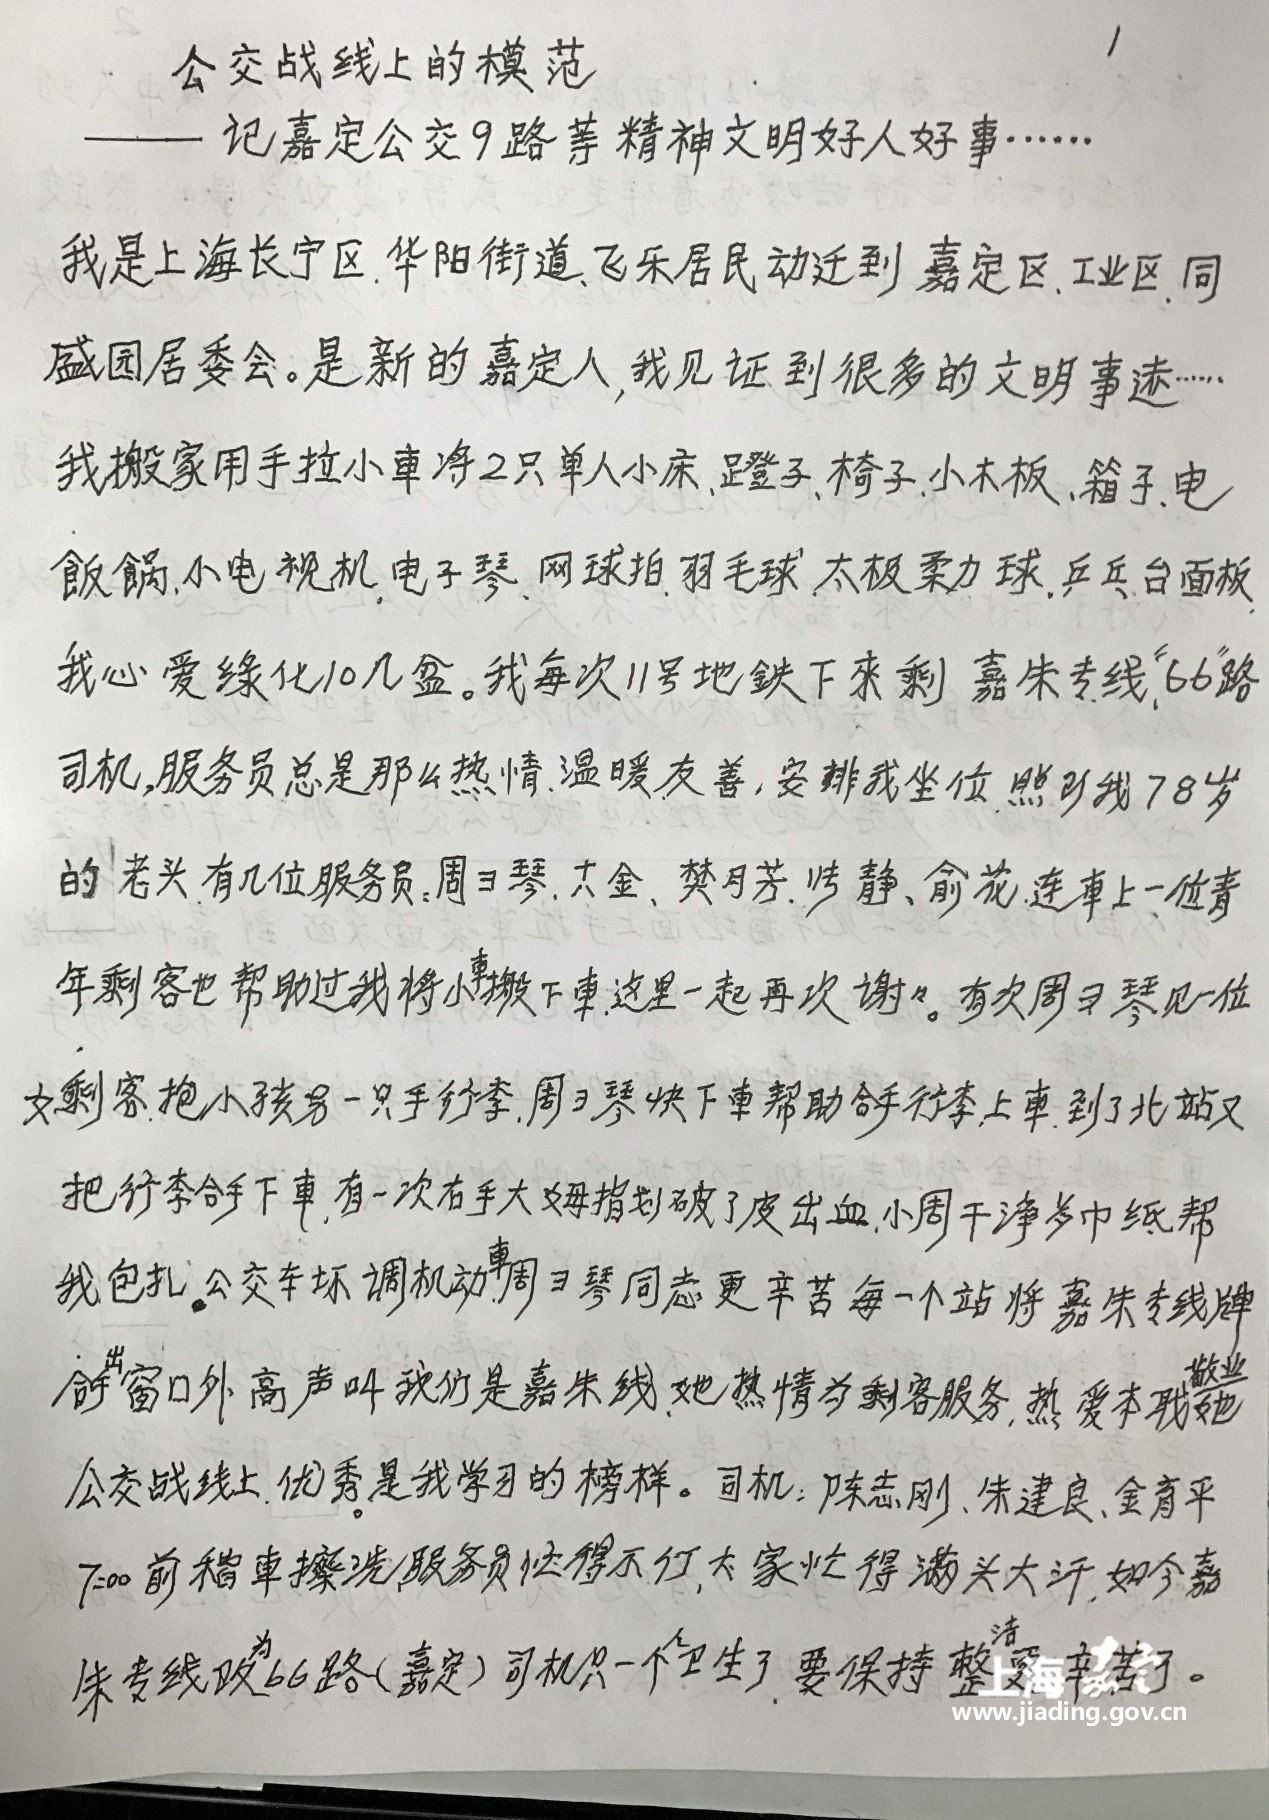 1
公交战线上的模范
——记嘉定公交9路等精神文明好人好事……
我是上海长宁区.华阳街道、飞乐居民动迁到嘉定区、工业区.同
盛园居委会。是新的嘉定人,我见证到很多的文明事迹……
我搬家用手拉小車将2只单人小床、蹬子、椅子.小木板、箱子、电
飯鍋.小电视机.电子琴、网球拍.羽毛球.太极柔力球.乒乓.台面板.
我心爱绿化10几盆。我每次11号地鉄下来剩嘉朱专线“66”路
司机,服务员总是那么热情.温暖友善,安排我坐位.照顾我78岁
的老头.有几位服务员:周彐琴.六金、樊月芳.静、俞花.连車上一位青
年剩客也帮助过我将小車搬下車.这里一起再次谢々。有次周彐琴见一位
女剩客.抱小孩另一只手行李.周彐琴快下車帮助拿行李上車.到了北站又
把行李拿下車,有一次右手大姆指划破了皮出血.小周干净多巾纸帮
我包扎。公交车坏调机动車周彐琴同志更辛苦每一个站将嘉朱专线牌
拿出窗口外高声叫我们是嘉朱线.她热情为剩客服务.热爱本职敬业她
公交战线上.优秀。是我学习的榜样。司机:陈志刚、朱建良、金育平
7:00前稽車擦洗,服务员忙得不行,大家忙得满头大汗.如今嘉
朱专线改为66路(嘉定)司机只一个人卫生了.要保持整洁更辛苦了。
上海嘉定
www.jiading.gov.cn